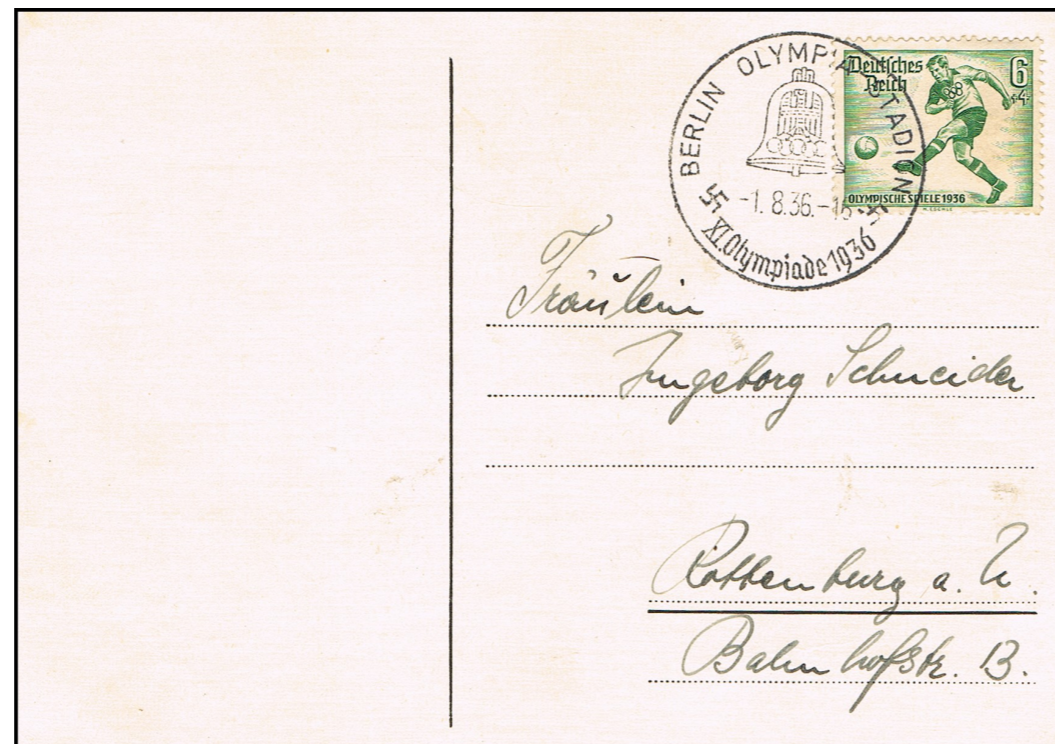 BERLIN OLYMPIA-STADION
-1. 8. 36.-
XI. Olympiade 1936
Deutsches
Reich
6
+4
OLYMPISCHE SPIELE 1936
Fräulein
Ingeborg Schneider
Rottenburg a. N.
Bahnhofstr. 13.